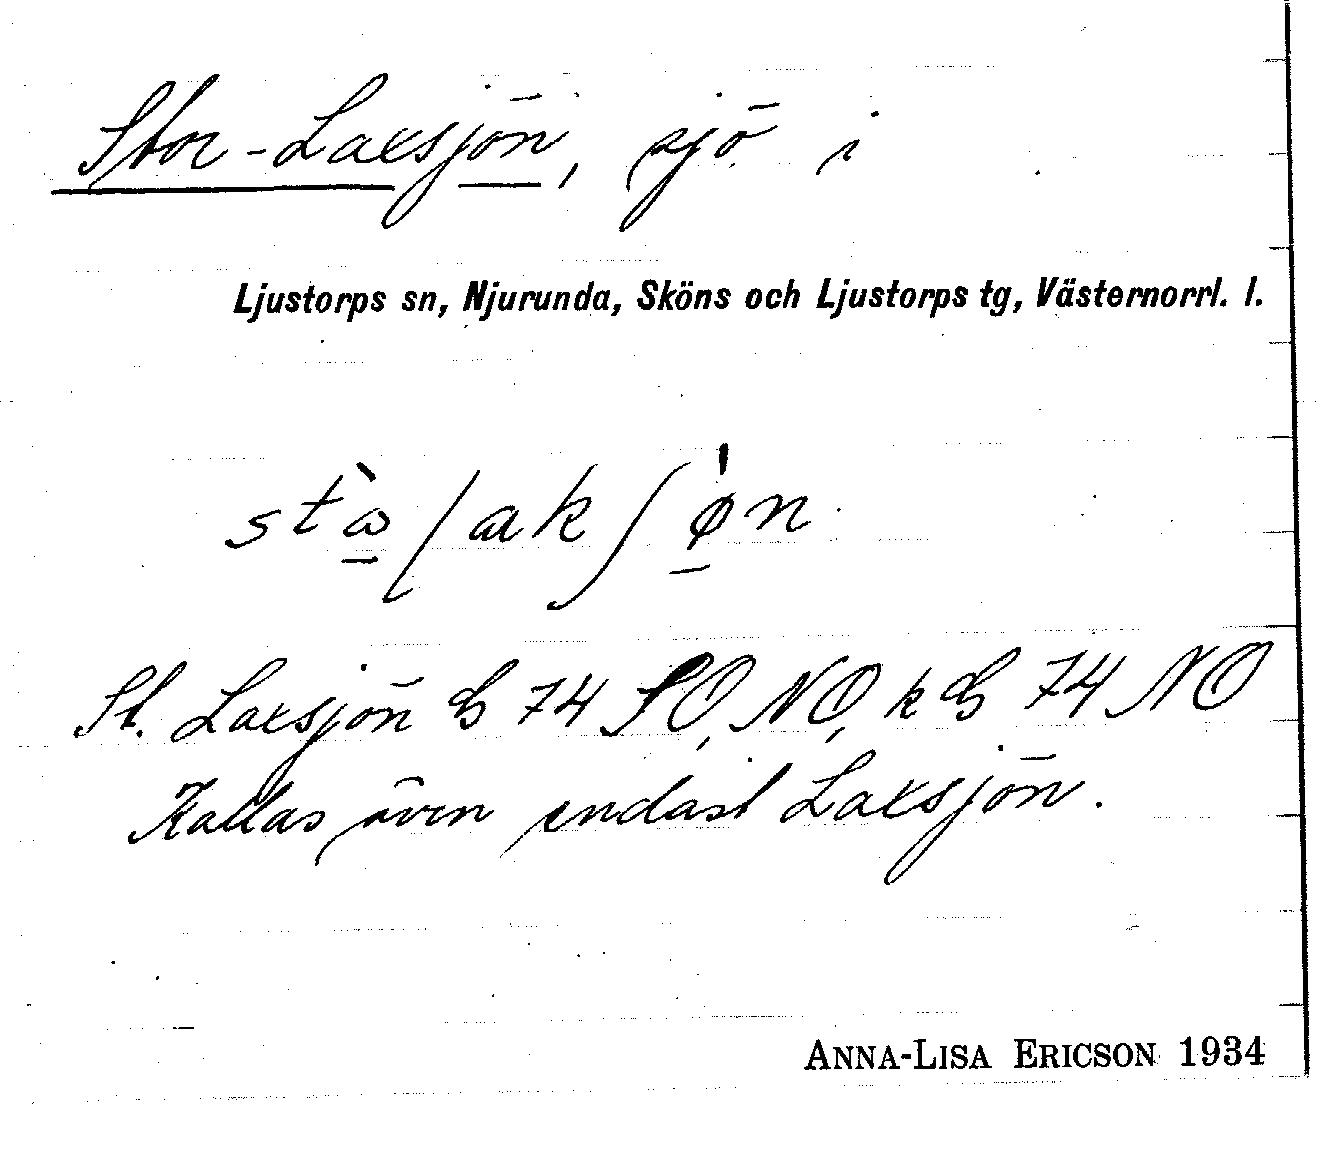 Stor-Laxsjön, sjö i
Ljustorps sn, Njurunda, Sköns och Ljustorps tg, Västernorrl. l.
stɷ̀lakʃø̍n
St. Laxsjön G 74 SO, NO, k G 74 NO
Kallas även endast Laxsjön.
ANNA-LISA ERICSON 1934